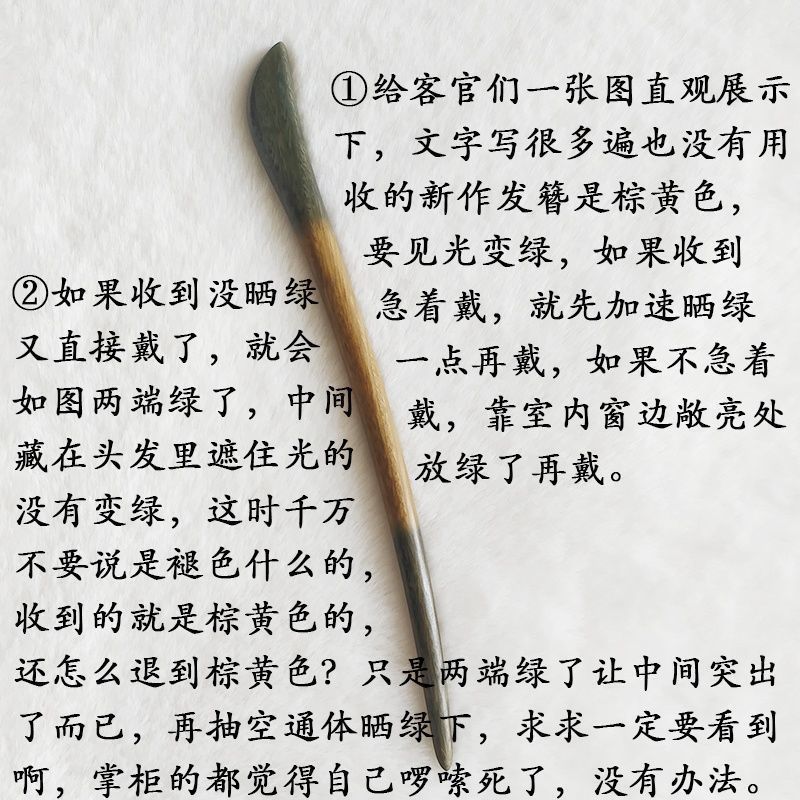 ①给客官们一张图直观展示
下，文字写很多遍也没有用
收的新作发簪是棕黄色，
要见光变绿，如果收到
急着戴，就先加速晒绿
一点再戴，如果不急着
戴，靠室内窗边敞亮处
放绿了再戴。
②如果收到没晒绿
又直接戴了，就会
如图两端绿了，中间
藏在头发里遮住光的
没有变绿，这时千万
不要说是褪色什么的，
收到的就是棕黄色的，
还怎么退到棕黄色？只是两端绿了让中间突出
了而已，再抽空通体晒绿下，求求一定要看到
啊，掌柜的都觉得自己啰嗦死了，没有办法。